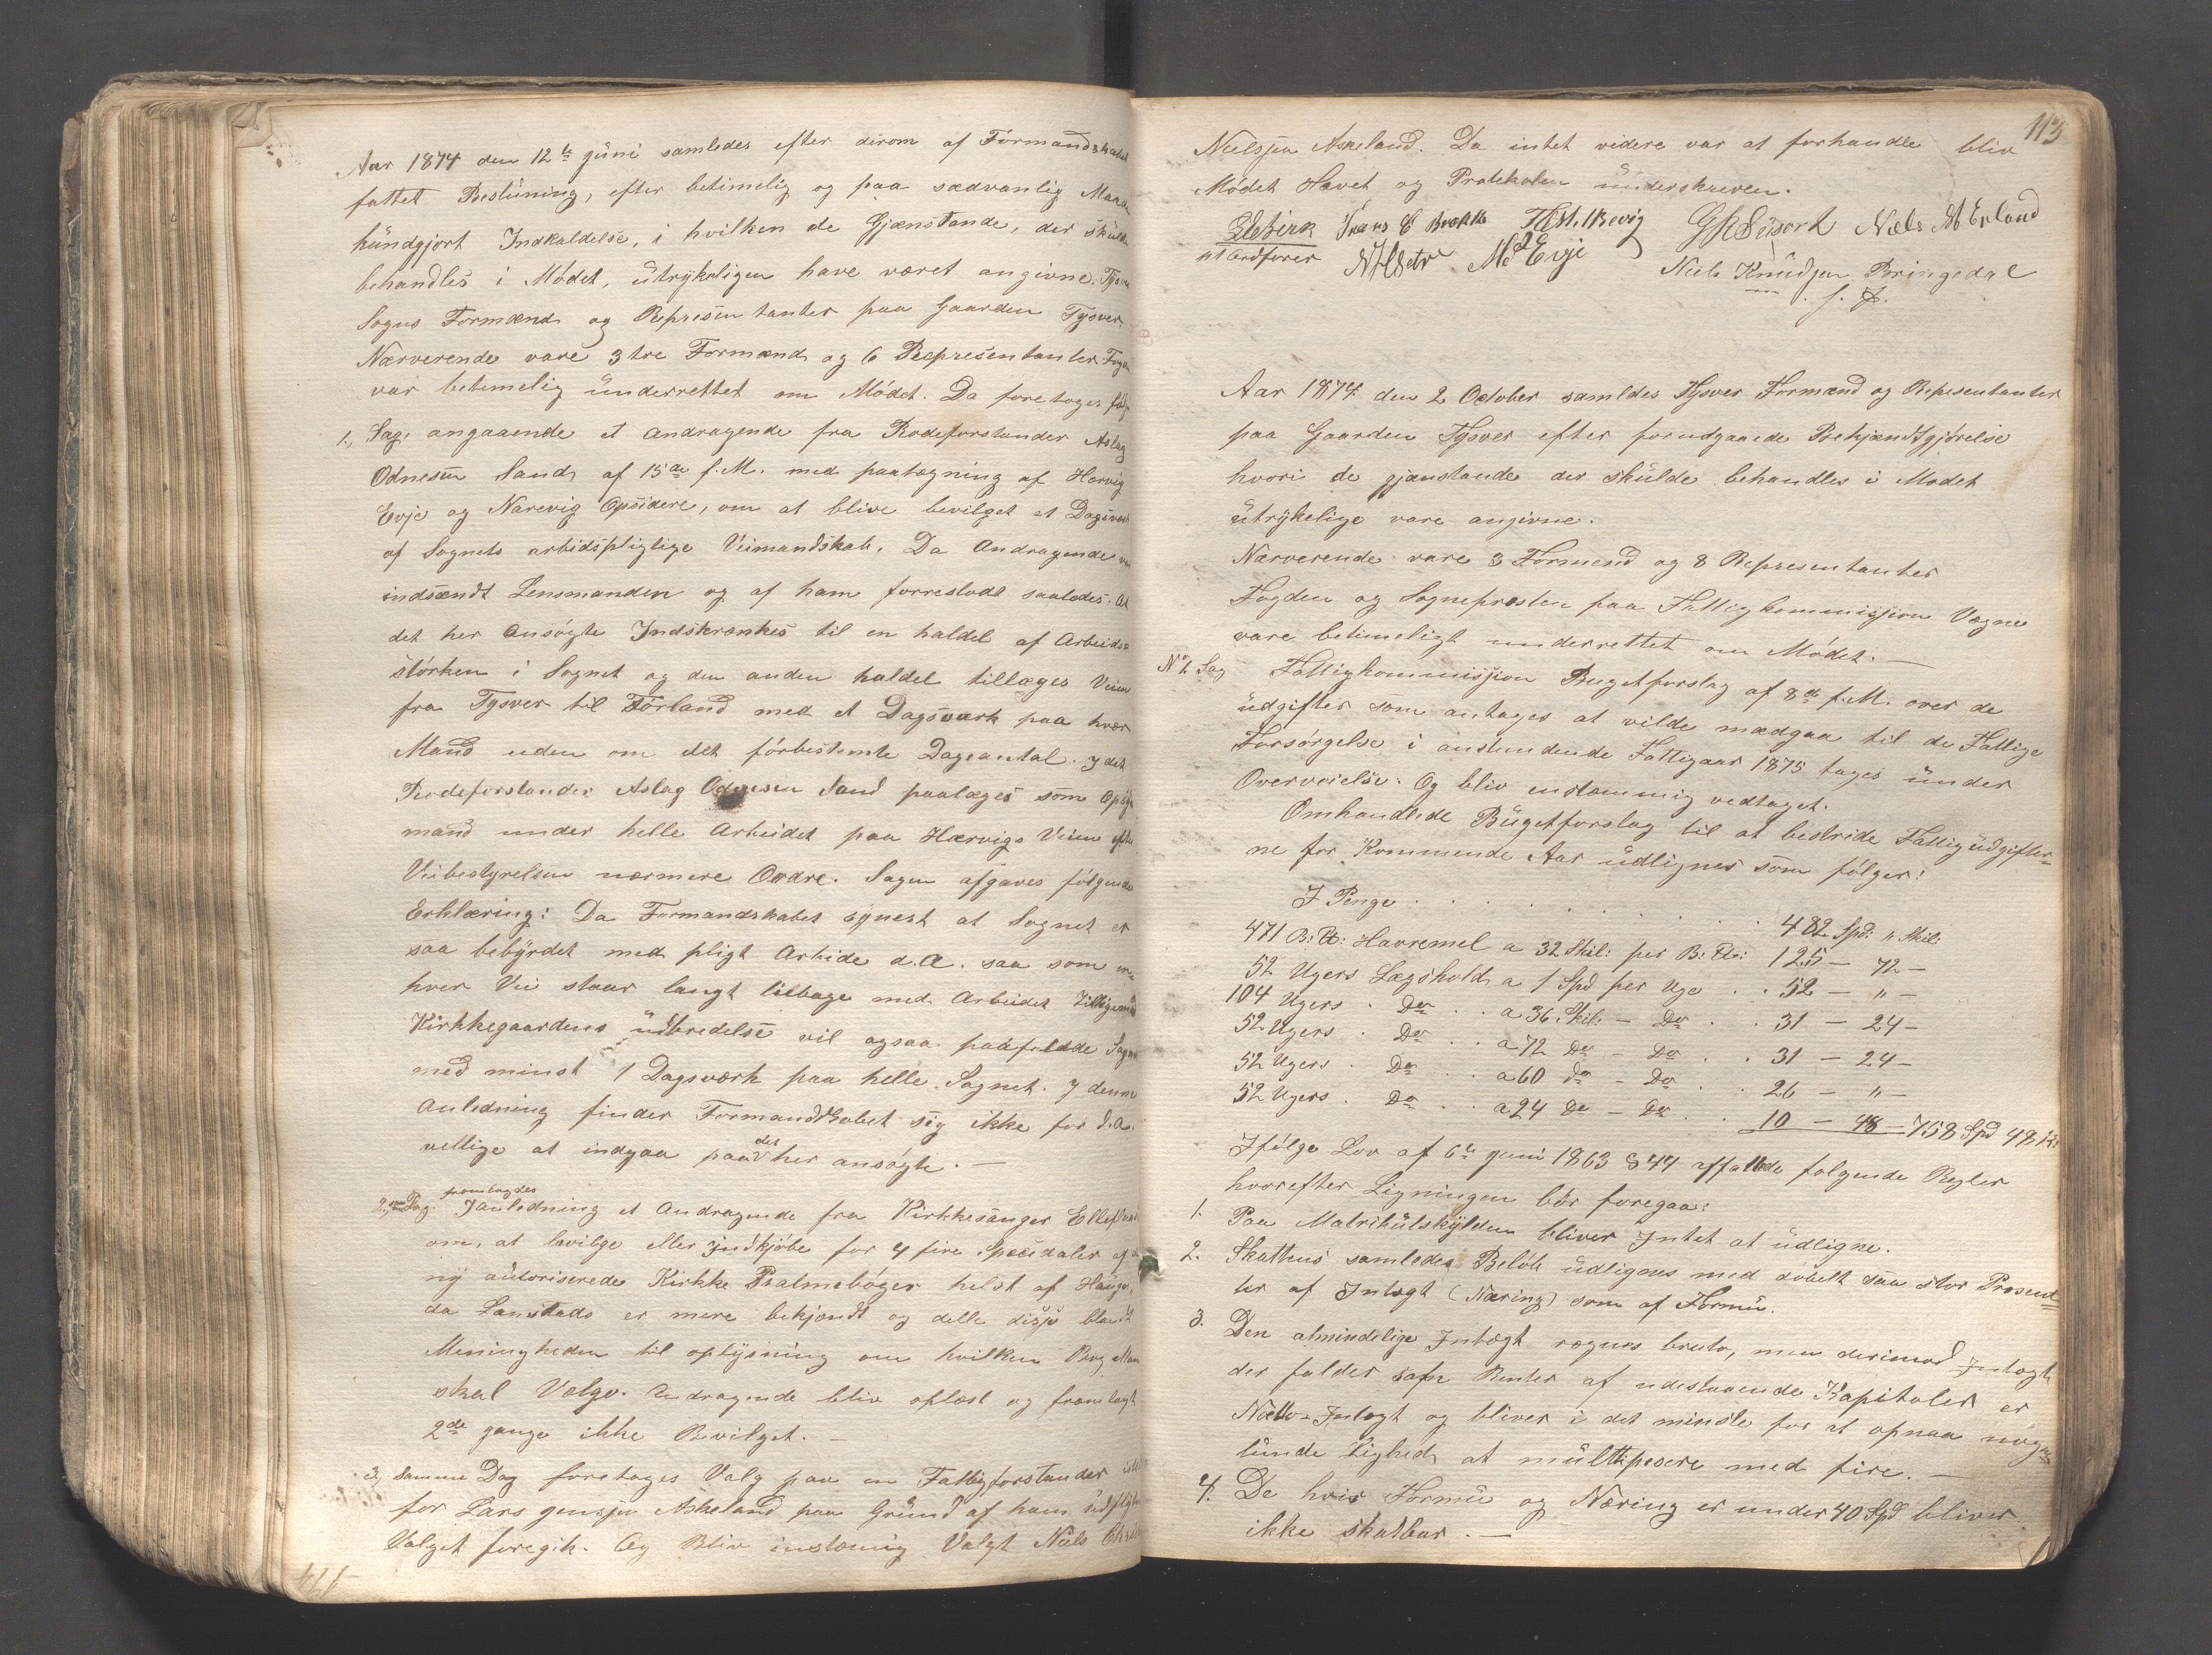 Aar 1874 den 12te Juni samledes efter derom af Formandskabet
fattet Beslúning, efter betimelig og paa sædvanlig Maade
kúndgjort Indkaldelse, i hvilken de Gjænstande, der skúlde
behandles i Mödet, útrykeligen have været angivne, Tysvær
Sogns Formænd og Represen tanter paa Gaarden Tysver.
Nærverende vare 3 tre Formænd og 6 Representanter Fogden
var betimelig únderrettet om Mödet. Da foretoges
1., Sag: angaaende et Andragende fra Rodeforstander Aslag
Odnesen Sand af 15de f.M. med paategning af Hervig
Evje og Narevig Opsidere, om at blive bevilget et Dagsværk
af Sognets arbidspligtige Veimandskab. Da Andragende var
indsændt Lensmanden og af ham forreslodt saaledes: At
det her Ansögte Indskrænkes til en haldel af Arbeids-
störken i Sognet og den anden haldel tillæges Veien
fra Tysver til Förland med et Dagsværk paa hver
Mand uden om det förbestemte Dageantal. I det
Rodeforstander Aslag Odnesen Sand paalæges som Opsyns
mand under helle Arbeidet paa Hærvigs Veien efter
Veibestyrelsen nærmere Ordre. Sagen afgaves fölgende
Erklæring: Da Formandskabet synest at Sognet er
saa bebyrdet med pligt Arbide d.A. saa som en
hver Vei staar langt tilbage med Arbeidet Tilligemed
Kirkkegaardens údbredelse vil ogsaa paafalde Sognet
med minst 1 Dagsværk paa helle Sognet. I denne
Anledning finder Formandskabet sig ikke for d.A.
vellige at indgaa paa det her ansögte. —
2., Sag. framlagdes Ianledning et Andragende fra Kirkkesanger
om, at bevilge eller Indkjöbe for 4 fire Speciedaler af
ny aútoriserede Kirkke Psalmeböger helst af Hauges
da Lanstads er mere bekjendt og delle disse blandt
Meningheden til oplysning om hvilken Bog Man
skal Vælge. Andragende bliv oplæst og framlagt
2de gange ikke Bevilget. —
3, Samme Dag foretoges Valg paa en Fattigforstander
for Lars Jensen Askeland paa Grúnd af hans údflytn
Valget foregik. Og Bliv enstæmig Valgt Niels
113
Nielsen Askeland. Da intet videre var at forhandle bliv
Mödet Hævet og Protekolen únderskreven.
Ordförer
Niels Knúdsen Beringedal
Aar 1874 den 2 October samledes Tysver Formænd og Representanter
paa Gaarden Tysver efter forudgaaede Bekjændtgjörelse
hvori de gjænstande der skúlde behandles i Modet
útrykelige vare angivne.
Nærverende vare 3 Formend og 8 Representanter
Fogden og Sognepresten paa Fattigkommissjion Vægne
vare betimeligt underrettet om Mödet. —
No 1. Sag Fattigkommissjion Bugetforslag af 8de f.M. over de
údgifter som antages at vilde mædgaa til de Fattige
Forsörgelse i anstundende Fattigaar 1875 tages únder
Overveielse. Og bliv enstæmmig vedtaget.
Omhandlede Búgetforslag til at bestride Fattigúdgifter-
ne for Kommende Aar údlignes som fölger:
I Penge . . . . . . . . . 482 Spd: " Skil:
471 B: ℔: Havremel a 32 Skil: per B: ℔: 125 – 72 –
52 Ugers Lægshold a 1 Spd per Uge . . 52 – " –
104 Ugers . Do . . a 36 Skil. – Do . . 31 – 24 –
52 Ugers . Do . . a 72 Do – Do . . 31 – 24 –
52 Ugers . Do . . a 60 do – Do . . 26 – " –
52 Ugers . Do . . a 24 Do – Do . . 10 – 48 – 758 Spd 48 Sk:
Ifölge Lov af 6te Juni 1863 § 44 affattede folgende Regler
hvorefter Ligningen bör foregaa:
1. Paa Matrikúlskylden bliver Intet at údligne.
2. Skattens samlede Belöb údlignes med dobelt saa stor Prosent-
ter af Intægt (Næring) som af Formue.
3. Den almindelige Intægt regnes bruto, men derimod Intægt
der falder som Renter af udestaaende Kapitaler er
Netto-Intægt og bliver i det minste for at opnaa nogen-
lúnde Lighed at múltipesere med fire. —
4. De hvis Formue og Næring er under 40 Spd bliver
ikke skatbar. —